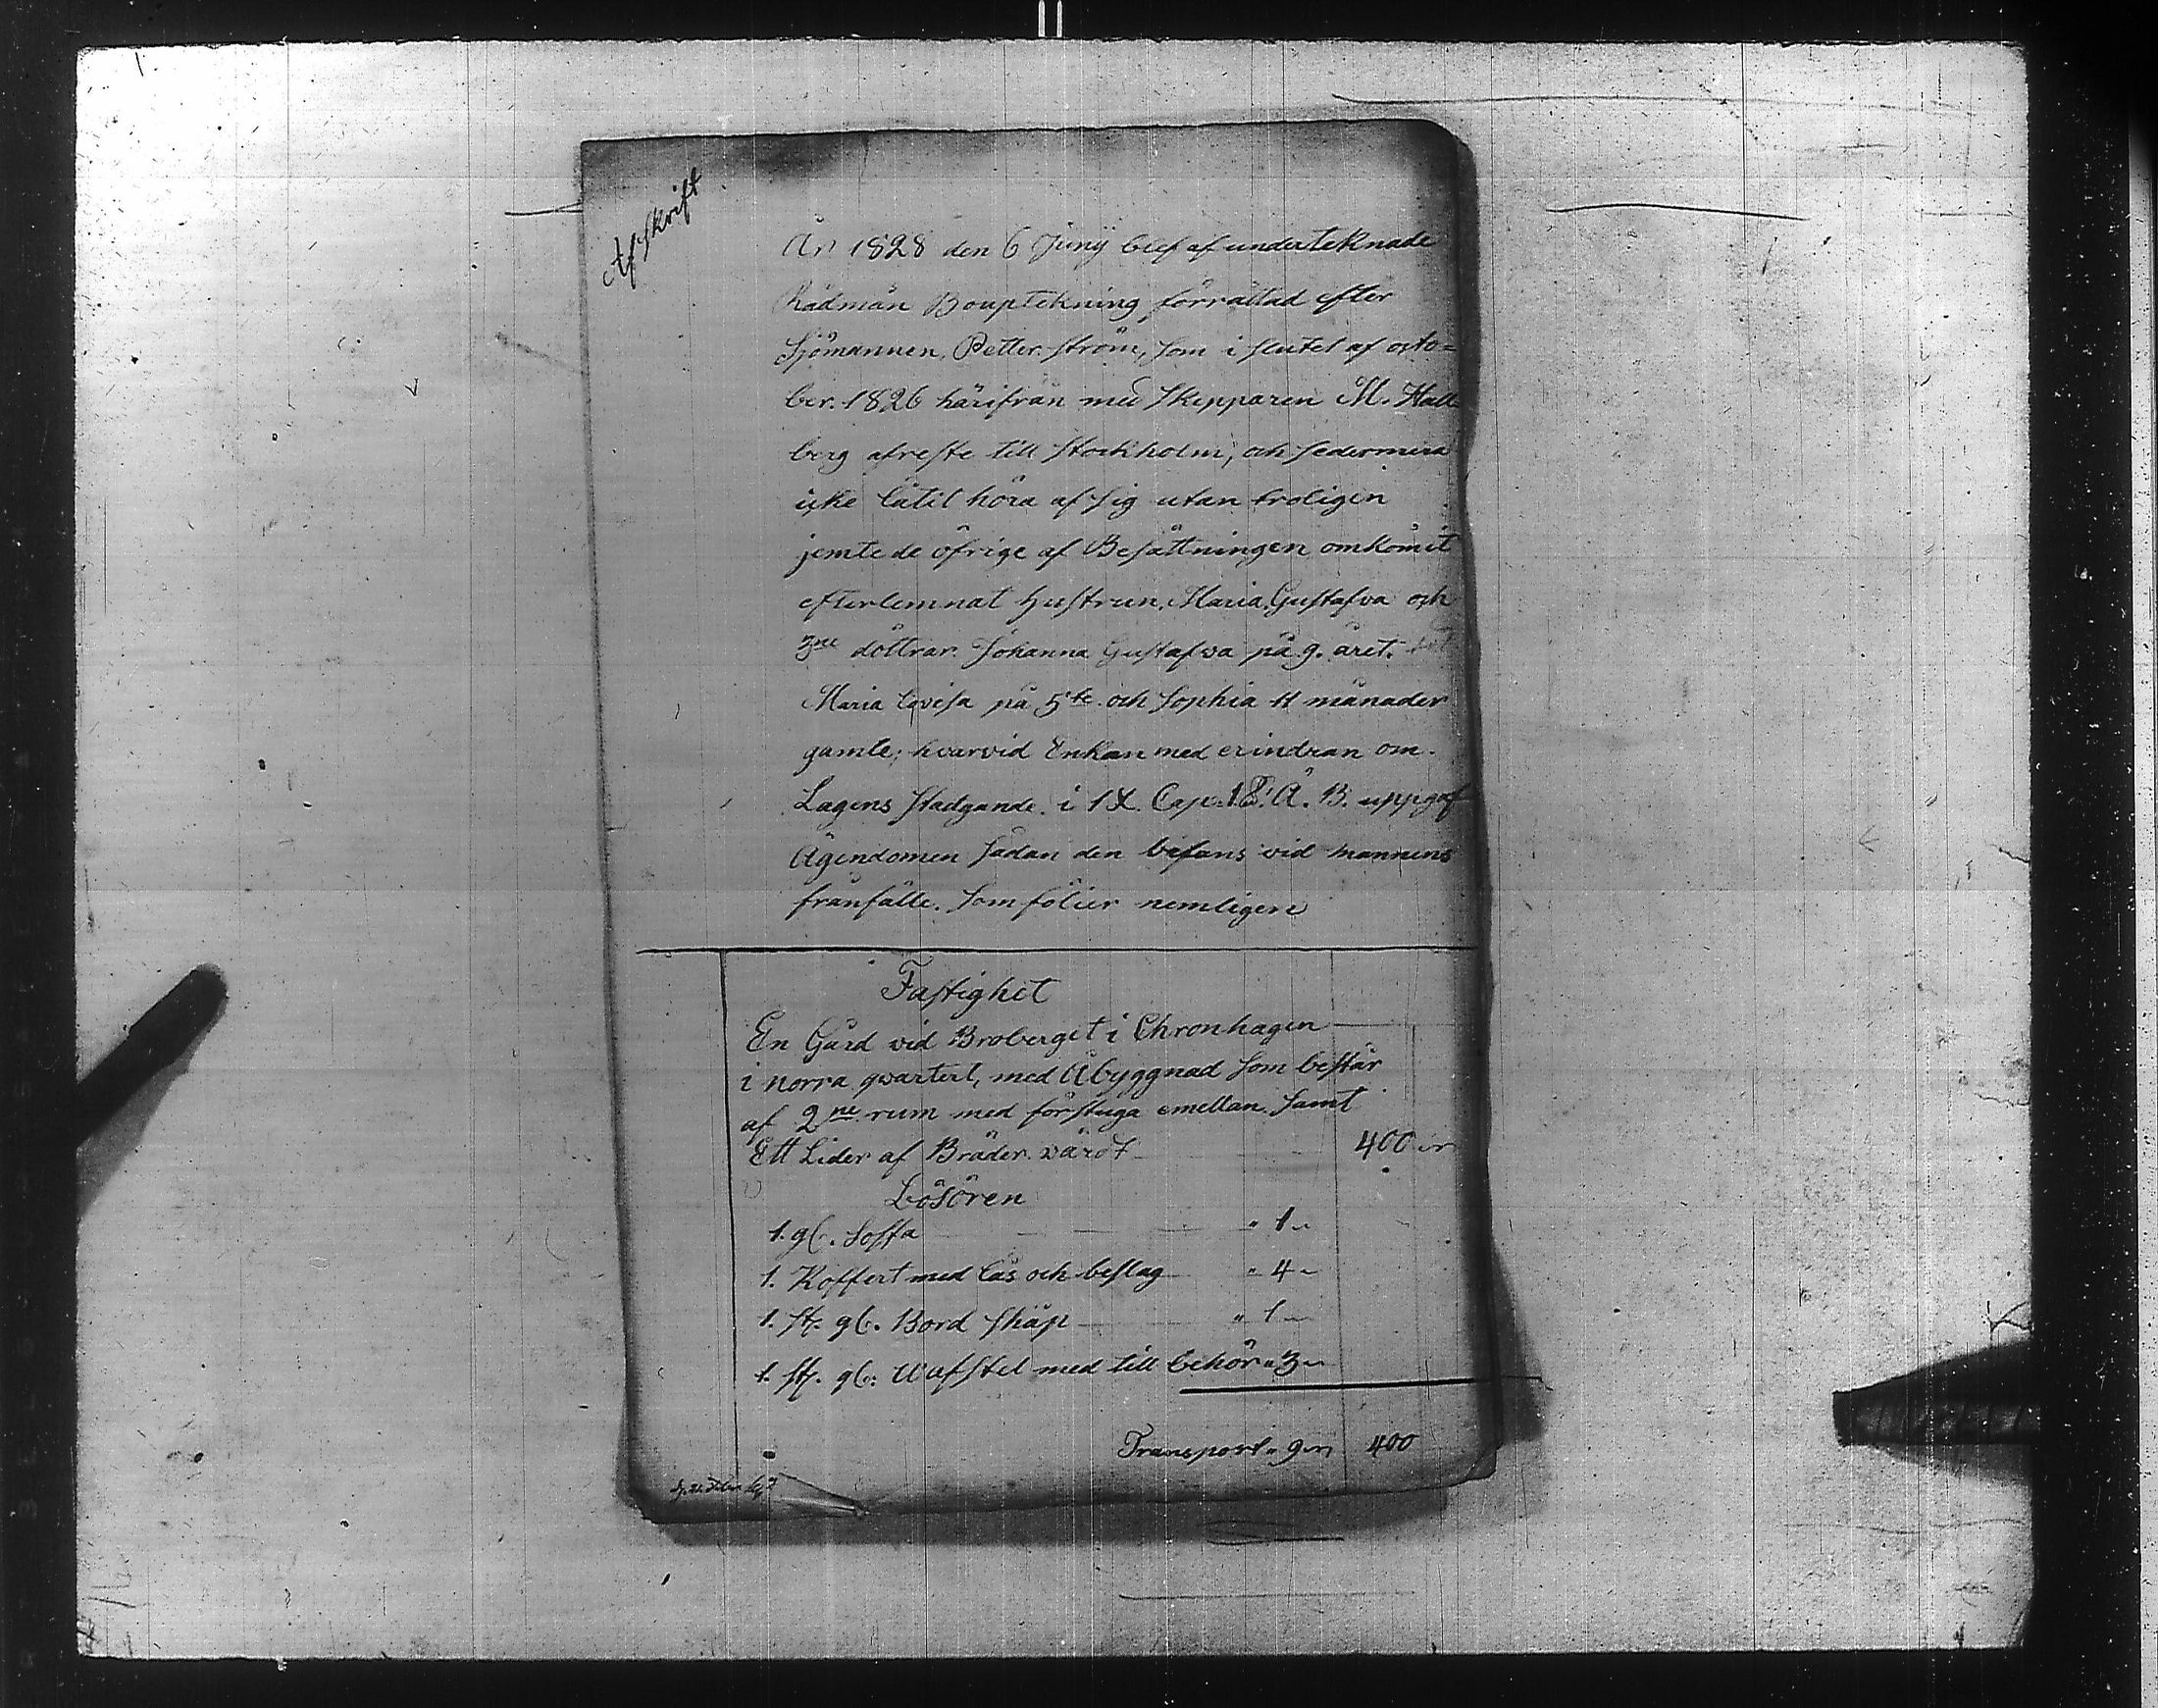 Afskrift
År 1828 den 6 Junÿ blef af underteknade
Rådmän Bouptekning förrättad efter
Sjömannen, Petter ström, som i slutet af octo=
ber. 1826 härifrån med skepparen M. Hall-
berg afreste till stockholm, och sedermera
icke låtit höra af sig utan troligen
jemte de öfrige af Besättningen omkomit
efterlemnat hustrun, Maria, Gustafva och
3ne döttrar. Johanna Gustafva på 9. året.
Maria Lovisa på 5te och Sophia 11 månader
gamle; hvarvid Enkan med erindran om
Lagens stadgande. i IX. Cap: 1.§. Ä. B. uppgaf
Ägendomen sådan den befans vid mannens
frånfälle. som följer nemligen
Fastighet
En Gård vid Broberget i Chronhagen
i norra qvarteret, med Åbyggnad som består
af 2ne rum med förstuga emellan samt
Ett Lider af Bräder. värdt 400 ur
Lösören
1. gl. Soffa " 1 "
1. Koffert med lås och beslag " 4 "
1. st. gl. Bord skåp " 1 "
1. st. gl: Wäfstel med till behör " 3 "
Transport " 9 " 400